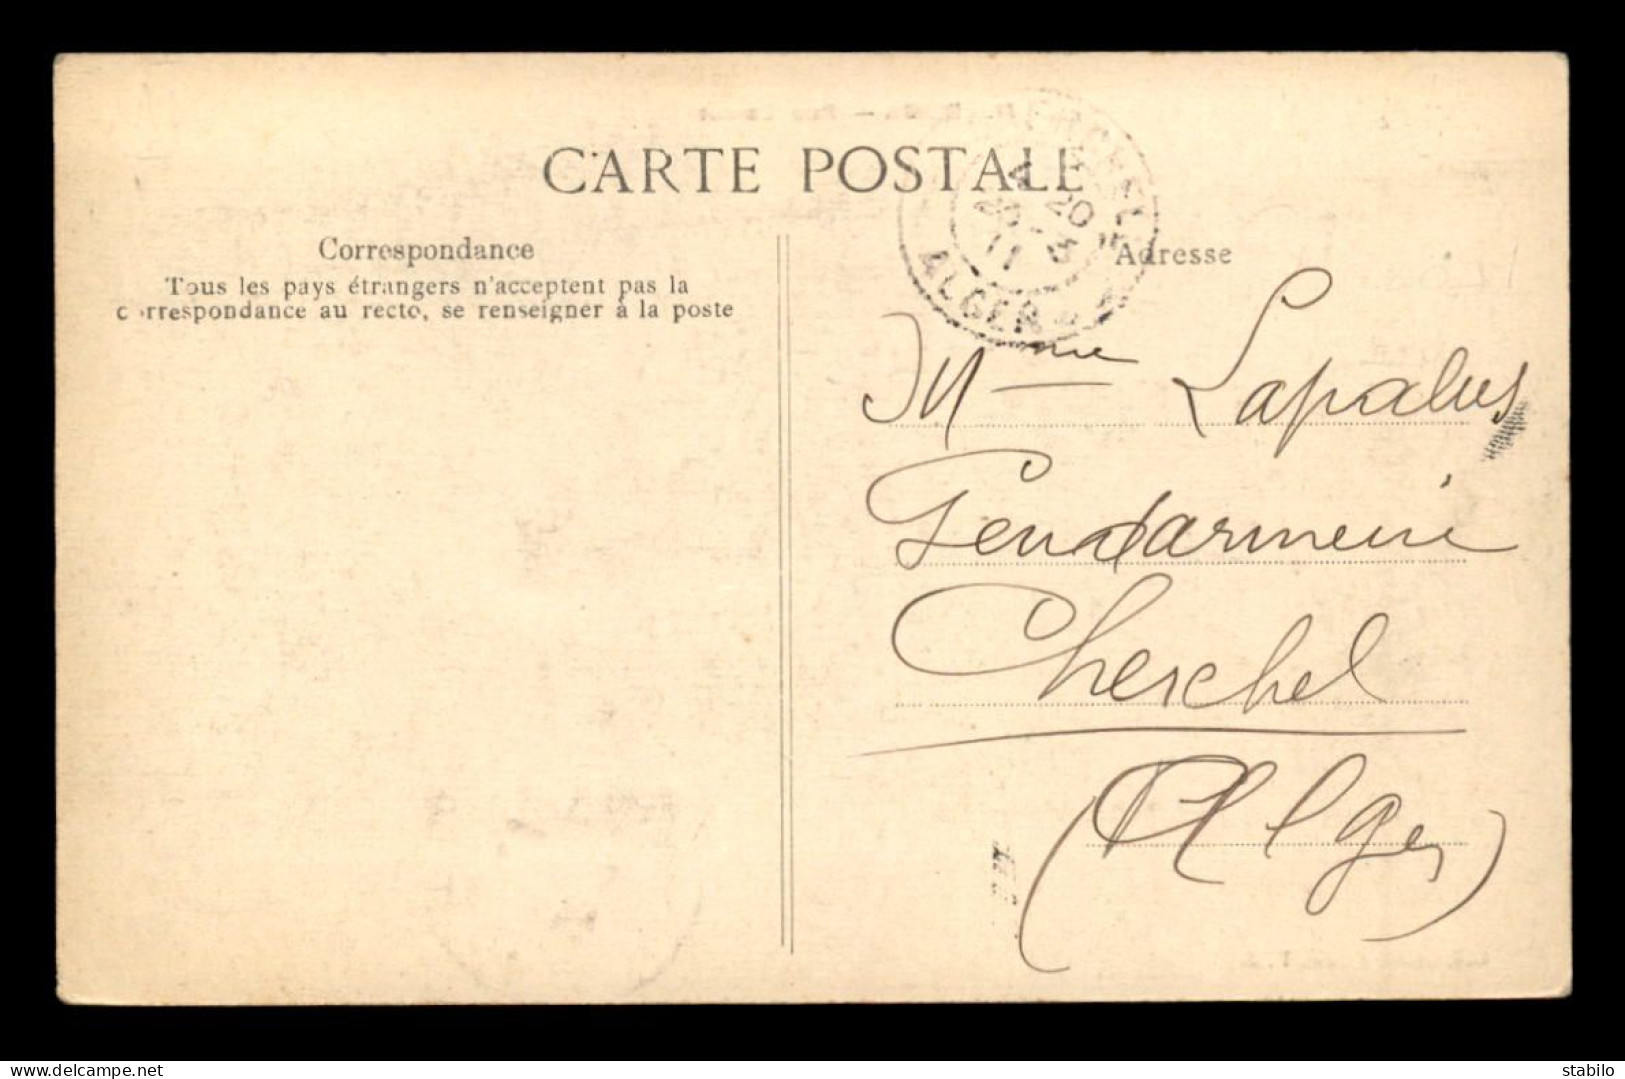 CARTE POSTALE
Correspondance
Tous les pays étrangers n'acceptent pas la
correspondance au recto, se renseigner à la poste
CHERCHELL
20
11
ALGER
Adresse
Mme Lapalus
Gendarmerie
Cherchel
(Alger)
www.delcampe.net
stabilo